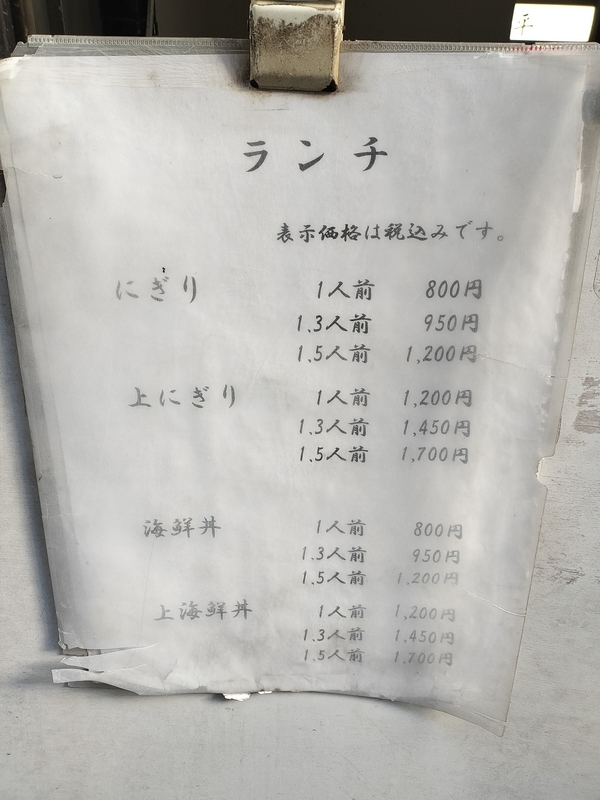 平
ランチ
表示価格は税込みです。
にぎり 1人前 800円
1.3人前 950円
1.5人前 1,200円
上にぎり 1人前 1,200円
1.3人前 1,450円
1.5人前 1,700円
海鮮丼 1人前 800円
1.3人前 950円
1.5人前 1,200円
上海鮮丼 1人前 1,200円
1.3人前 1,450円
1.5人前 1,700円